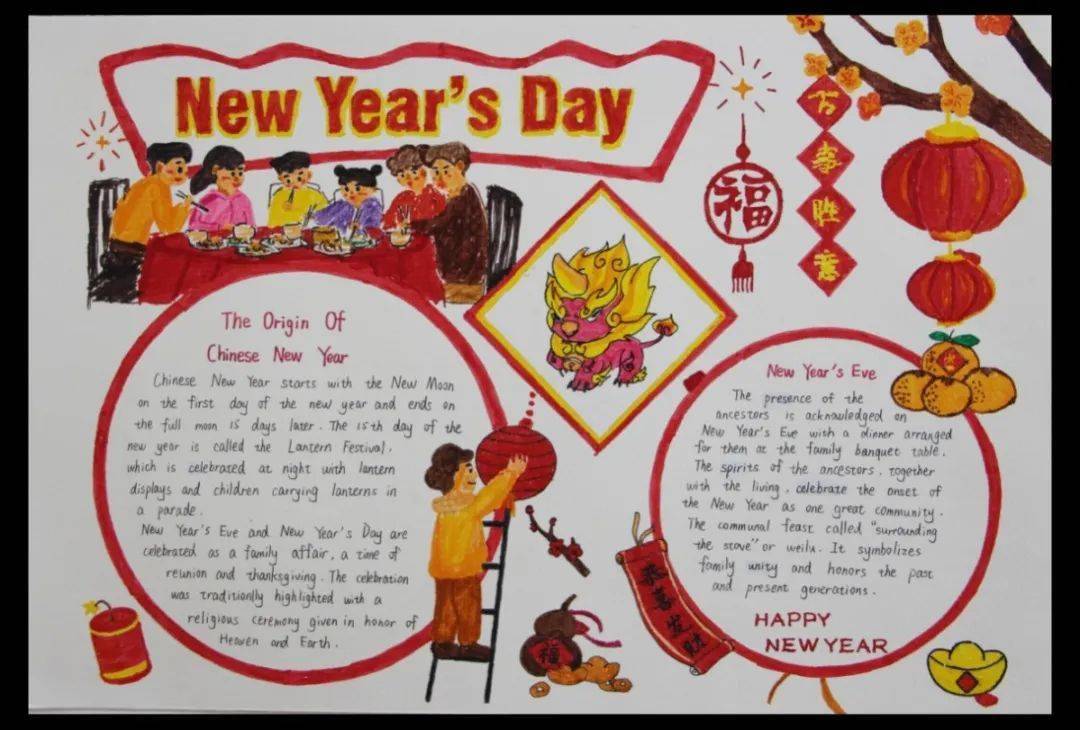 New Year's Day
福
万事胜意
The Origin Of
Chinese New Year
Chinese New Year starts with the New Moon
on the first day of the new year and ends on
the full moon 15 days later. The 15th day of the
new year is called the Lantern Festival,
which is celebrated at night with lantern
displays and children carrying lanterns in
a parade.
New Year's Eve and New Year's Day are
celebrated as a family affair, a time of
reunion and thanksgiving. The celebration
was traditionlly highlighted with a
religious ceremony given in honor of
Heaven and Earth.
New Year's Eve
The presence of the
ancestors is acknowledged on
New Year's Eve with a dinner arranged
for them at the family banquet table.
The spirits of the ancestors, together
with the living, celebrate the onset of
the New Year as one great community.
The communal feast called "surrounding
the stove" or weilu. It symbolizes
family unity and honors the past
and present generations.
HAPPY
NEW YEAR
恭喜发财
福